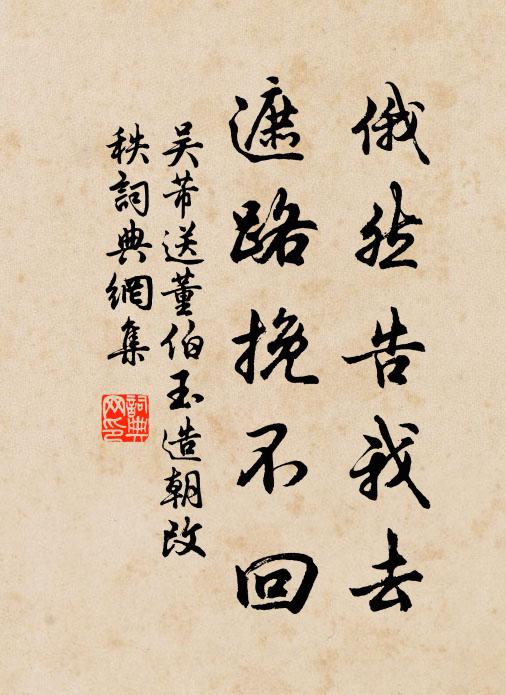 俄然告我去
遮路挽不回
吴芾送董伯玉造朝改
秩詞典網集
詞典
网印